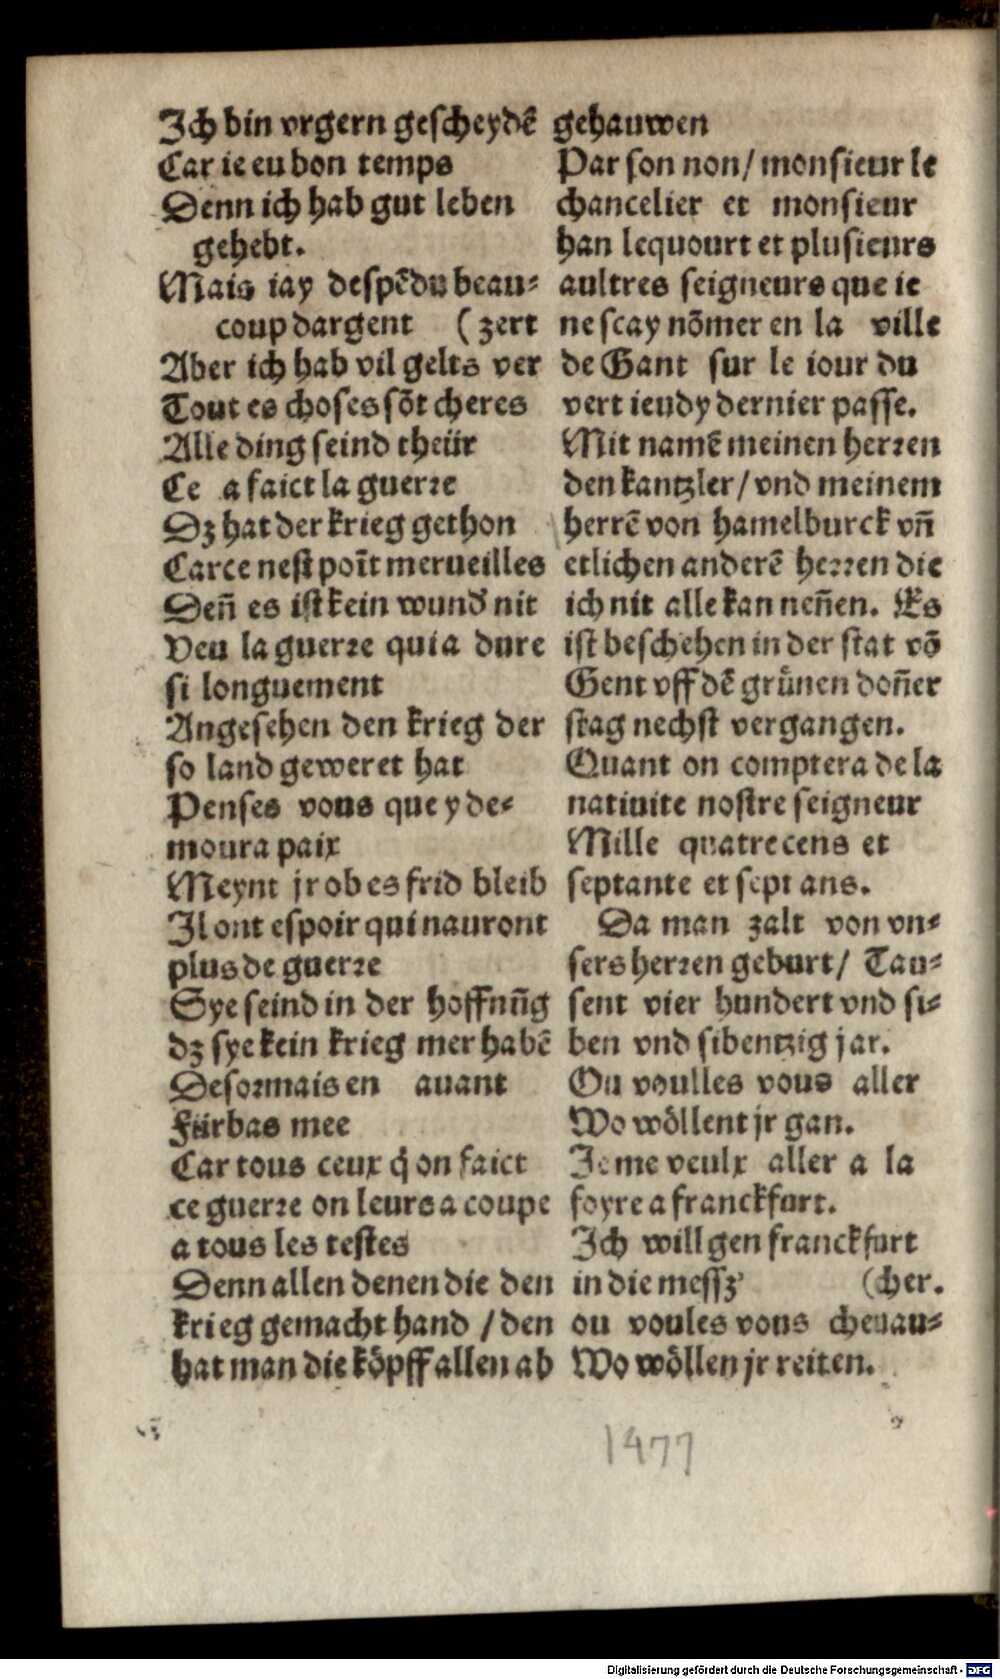 Ich bin vrgern gescheydē
Car ie eu bon temps
Denn ich hab gut leben
gehebt.
Mais iay despēdu beau⸗
coup dargent (zert
Aber ich hab vil gelts ver
Tout es choses sōt cheres
Alle ding seind theür
Ce a faict la guerre
Dz hat der krieg gethon
Carce nest poīt merueilles
Deñ es ist kein wund' nit
Veu la guerre quia dure
si longuement
Angesehen den krieg der
so land geweret hat
Penses vous que y de⸗
moura paix
Meynt jr ob es frid bleib
Il ont espoir qui nauront
plus de guerre
Sye seind in der hoffnūg
dz sye kein krieg mer habē
Desormais en auant
Fürbas mee
Car tous ceux q̇ on faict
ce guerre on leurs a coupe
a tous les testes
Denn allen denen die den
krieg gemacht hand / den
hat man die köpff allen ab
gehauwen
Par son non / monsieur le
chancelier et monsieur
han lequourt et plusieurs
aultres seigneurs que ie
ne scay nōmer en la ville
de Gant sur le iour du
vert ieudy dernier passe.
Mit namē meinen herren
den kantzler / vnd meinem
herrē von hamelburck vñ
etlichen anderē herren die
ich nit alle kan neñen. Es
ist beschehen in der stat vō
Gent vff dē grůnen doñer
stag nechst vergangen.
Quant on comptera de la
natiuite nostre seigneur
Mille quatre cens et
septante et sept ans.
Da man zalt von vn⸗
sers herren geburt / Tau⸗
sent vier hundert vnd si⸗
ben vnd sibentzig jar.
Ou voulles vous aller
Wo wöllent jr gan.
Ie me veulx aller a la
foyre a franckfurt.
Ich will gen franckfurt
in die messz (cher.
ou voules vous cheuau⸗
Wo wöllen jr reiten.
1477
Digitalisierung gefördert durch die Deutsche Forschungsgemeinschaft - DFG